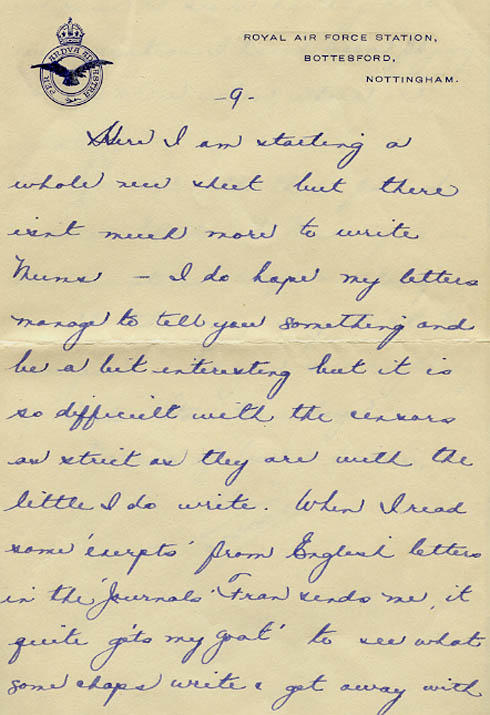 ROYAL AIR FORCE STATION,
BOTTESFORD,
NOTTINGHAM.
PER ARDVA AD ASTRA
-9-
Here I am starting a
whole new sheet but there
isnt much more to write
Mums - I do hope my letters
manage to tell you something and
be a bit interesting but it is
so difficult with the censors
as strict as they are with the
little I do write. When I read
some 'exerpts' from English letters
in the 'Journals' Fran sends me, it
quite 'gets my goat' to see what
some chaps write & get away with